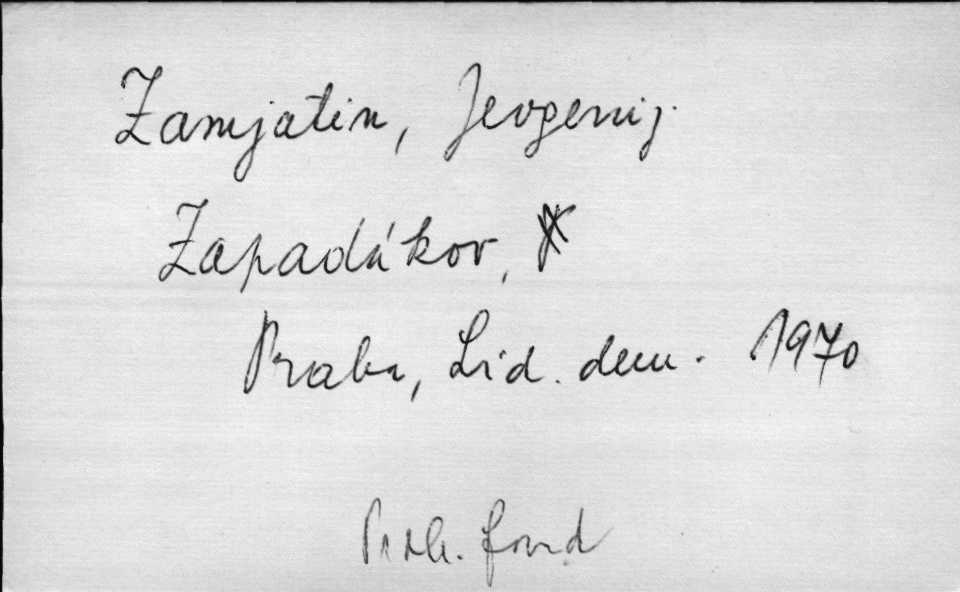 Zamjatin, Jevgenij
Zapadákov,
Praha, Lid. dem. 1970
fond